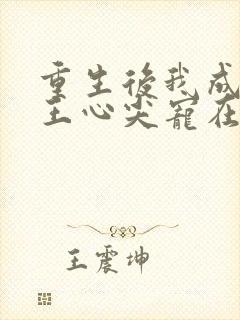 重生後我成
王心尖寵在
王震坤